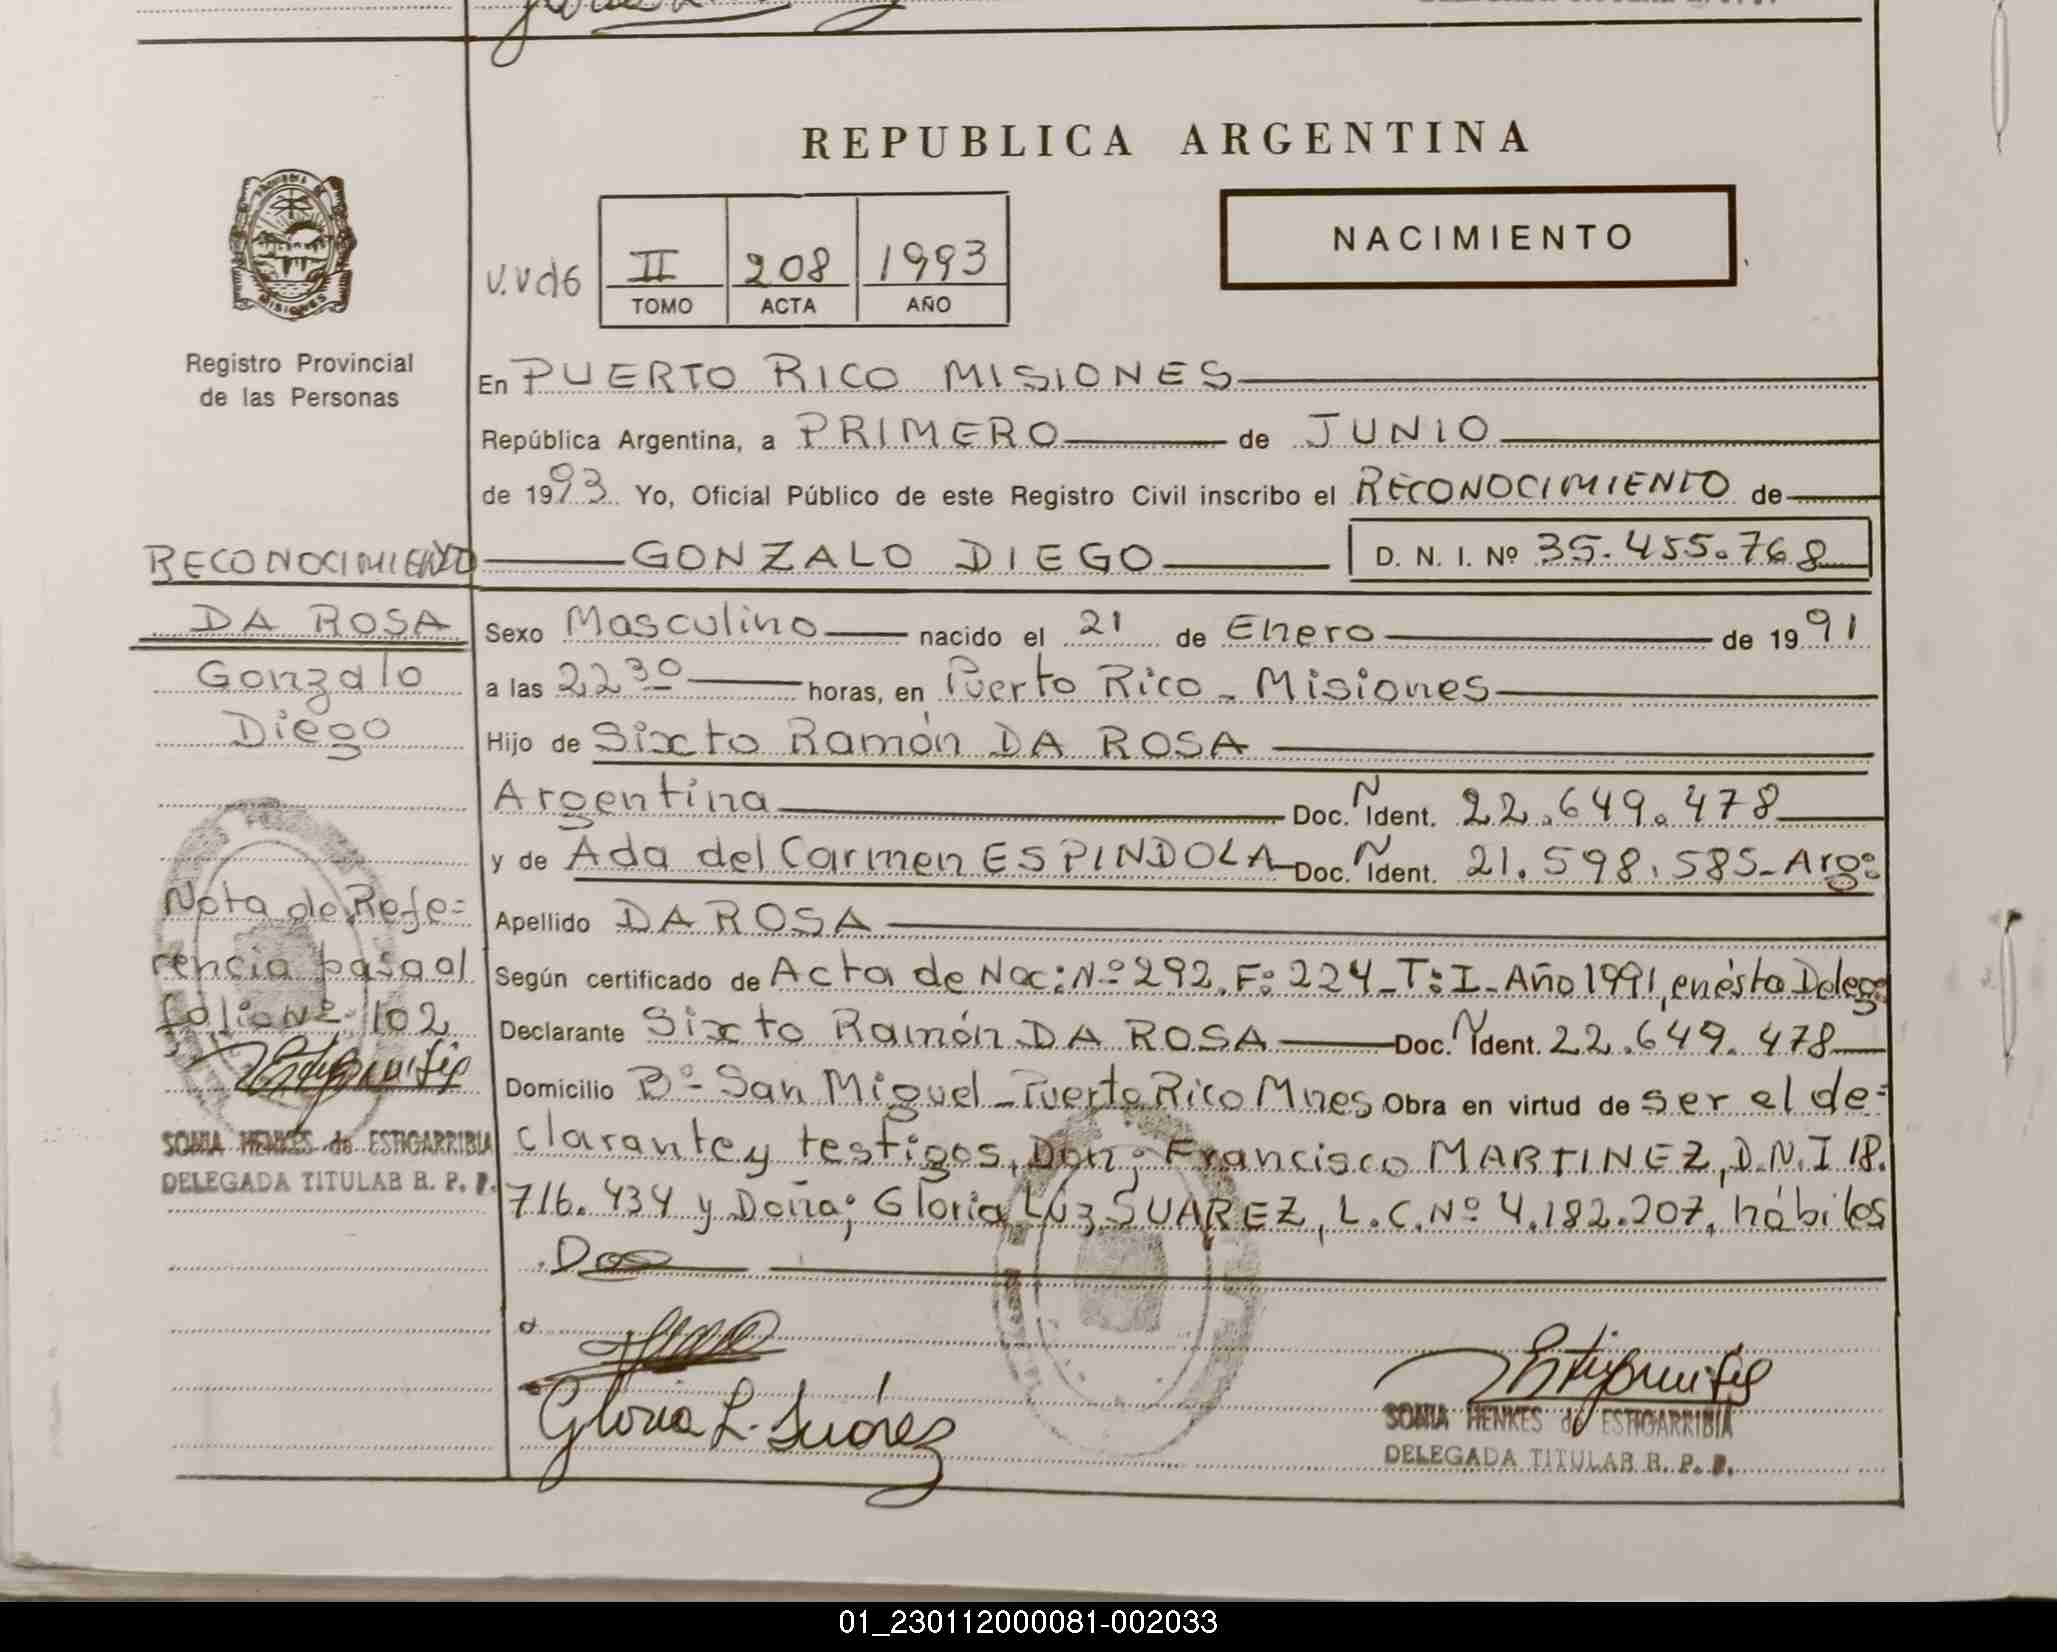 REPUBLICA ARGENTINA
PROVINCIA DE
MISIONES
Registro Provincial
de las Personas
NACIMIENTO
V.Vd6
II 208 1993
TOMO ACTA AÑO
En PUERTO RICO MISIONES
República Argentina, a PRIMERO de JUNIO
de 1993 Yo, Oficial Público de este Registro Civil inscribo el RECONOCIMIENTO de
GONZALO DIEGO D. N. I. Nº 35.455.768
RECONOCIMIENTO
DA ROSA
Gonzalo
Diego
Nota de Refe=
rencia pasa al
folio Nº 102
SONIA HENKES de ESTIGARRIBIA
DELEGADA TITULAR R. P. P.
Sexo Masculino nacido el 21 de Enero de 1991
a las 22 30 horas, en Puerto Rico - Misiones
Hijo de Sixto Ramón DA ROSA
Argentina Doc. N Ident. 22.649.478
y de Ada del Carmen ESPINDOLA Doc. N Ident. 21.598.585 - Arg:
Apellido DA ROSA
Según certificado de Acta de Nac: Nº 292. F: 224 - T: I - Año 1991, en ésta Deleg
Declarante Sixto Ramón DA ROSA Doc. N Ident. 22.649.478
Domicilio Bº - San Miguel - Puerto Rico Mnes Obra en virtud de ser el de=
clarante y testigos, Don; Francisco MARTINEZ, D.N.I 18.
716.434 y Doña; Gloria Luz SUAREZ, L.C. Nº 4.182.207, hábiles
Gloria L. Suárez
SONIA HENKES de ESTIGARRIBIA
DELEGADA TITULAR R. P. P.
01_230112000081-002033